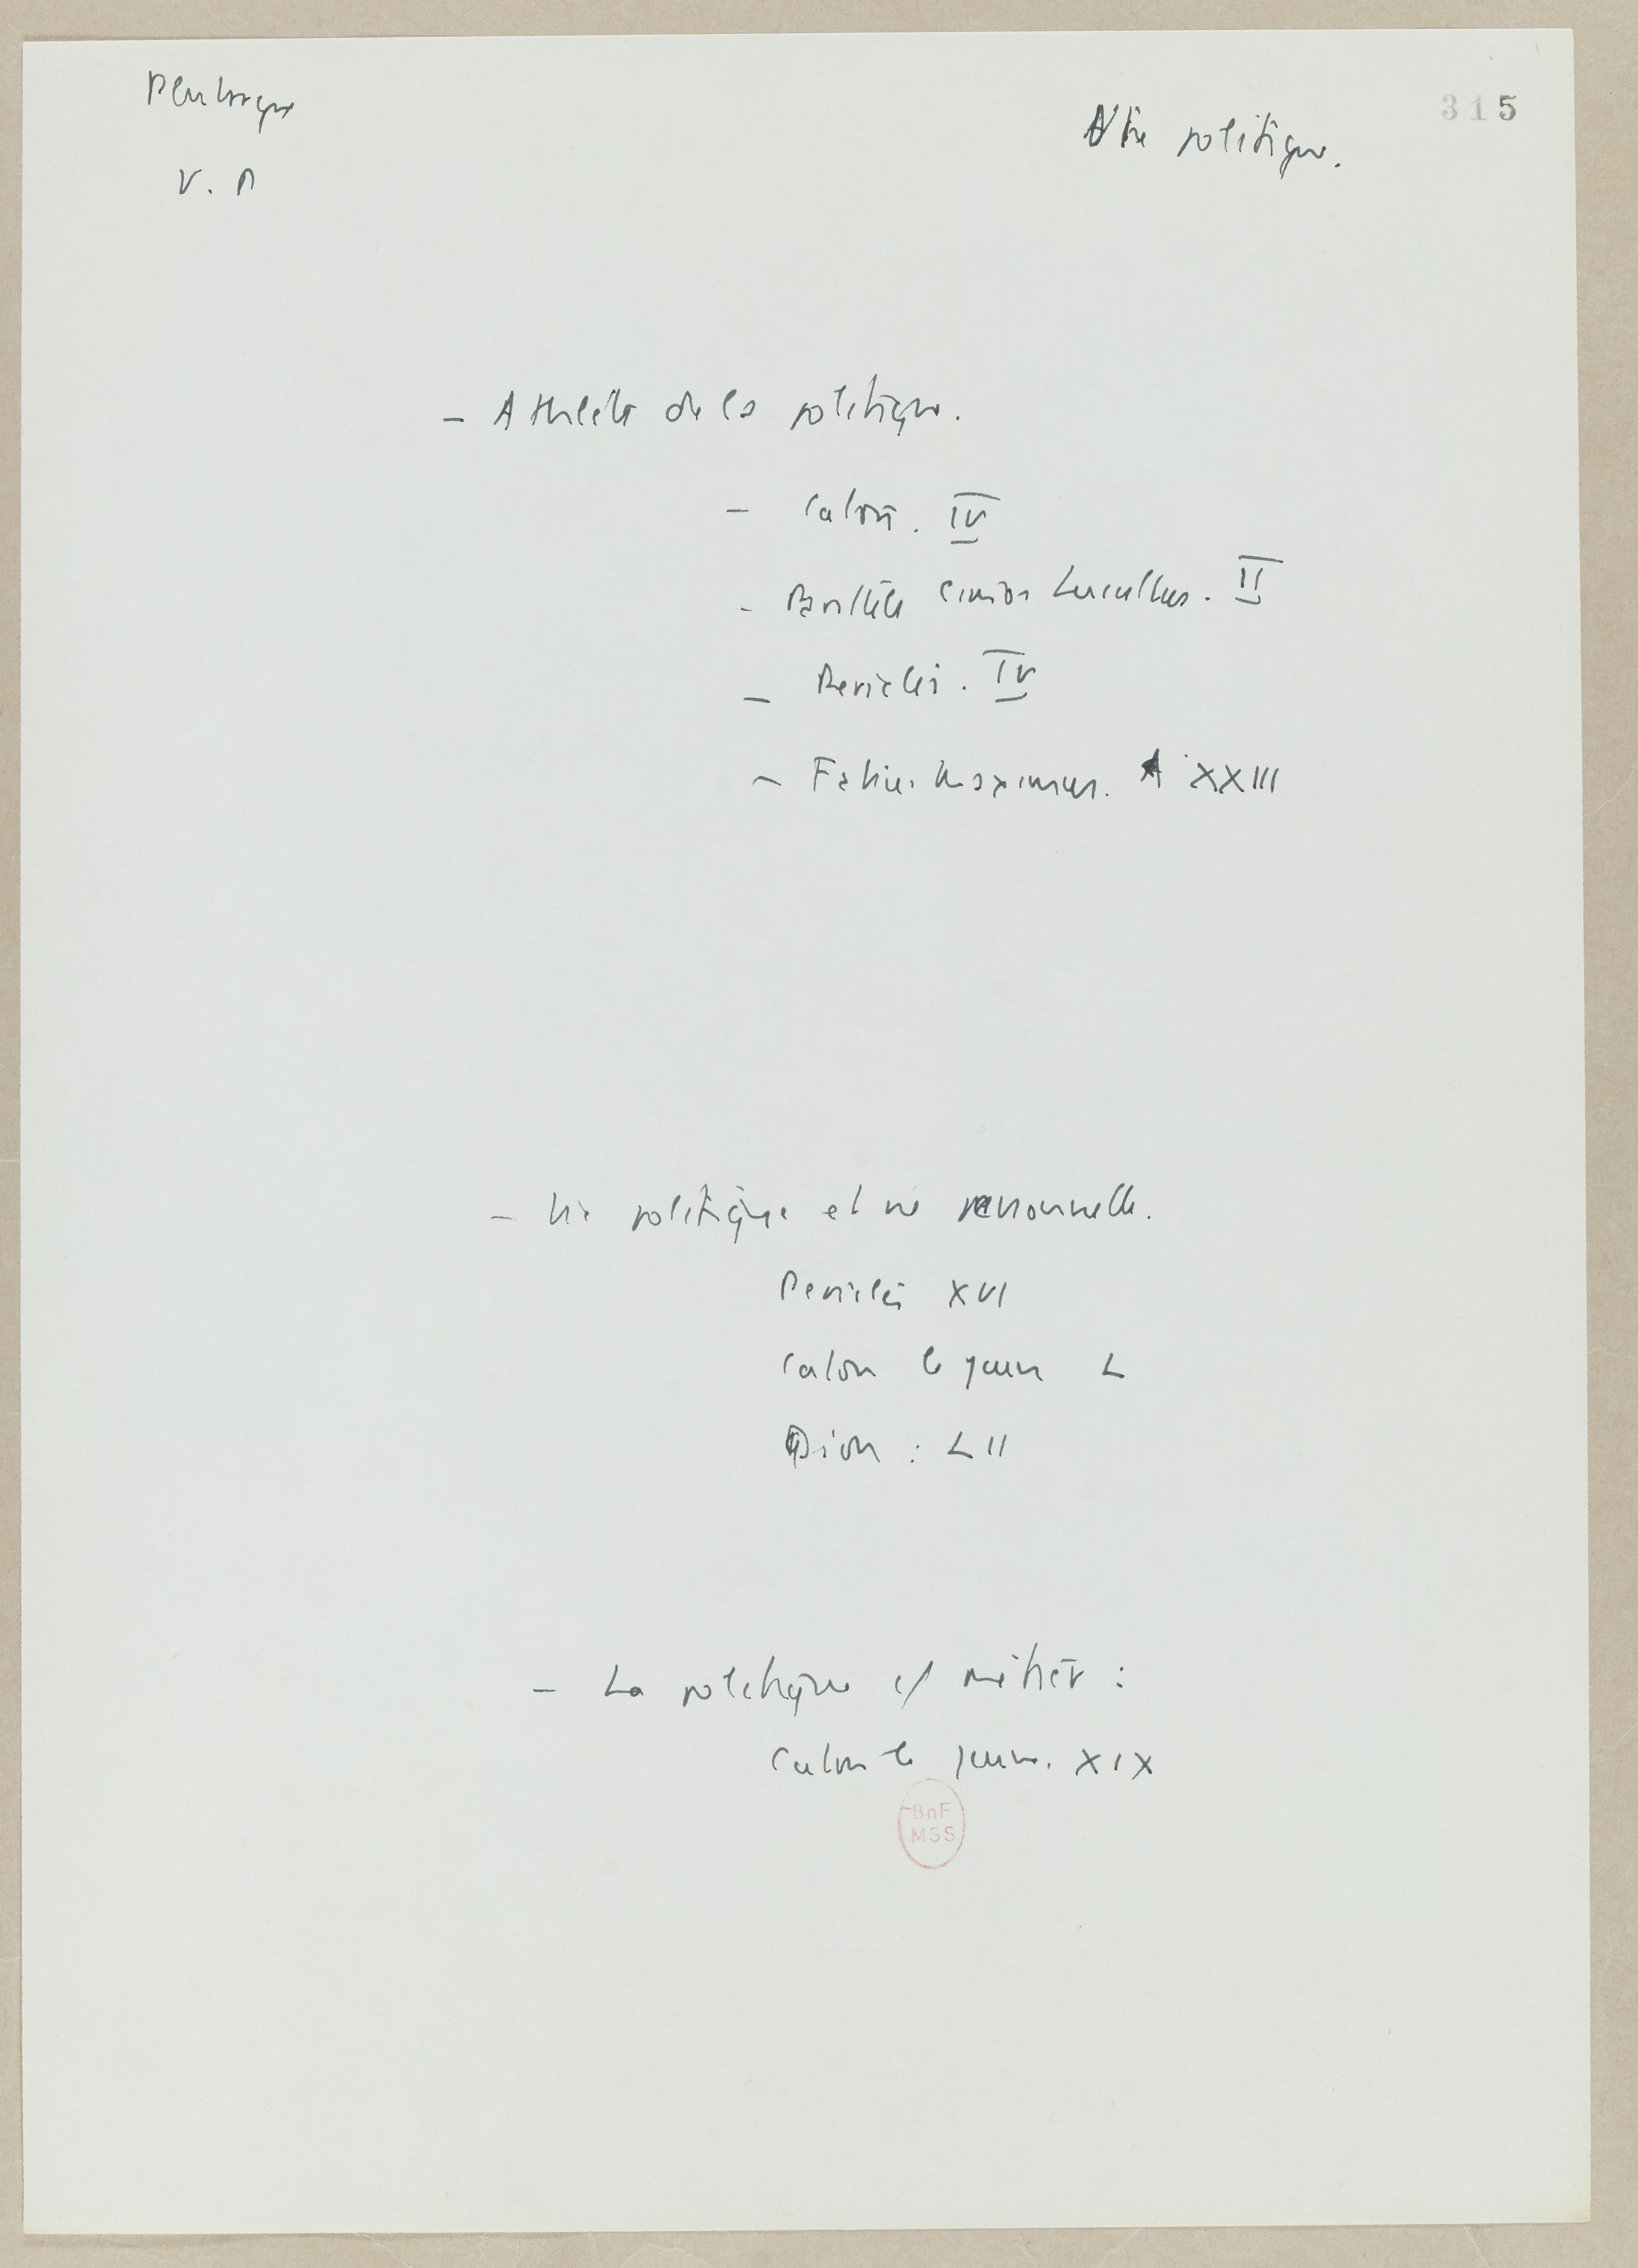 Plutarque
V. P
Vie politique.
315
– Athlète de la politique.
– Caton. IV
– Parallèle Cimon Lucullus. II
– Periclès. IV
– Fabius Maximus. XXIII
– Vie politique et vie personnelle.
Periclès XVI
Caton le jeune L
Dion : LII
– La politique c/ métier :
Caton le jeune. XIX
BnF
MSS